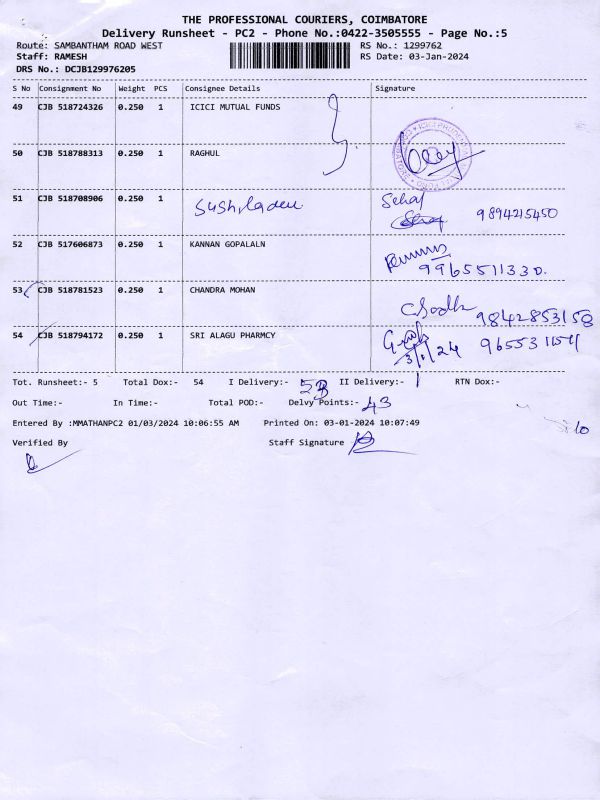 THE PROFESSIONAL COURIERS, COIMBATORE
Delivery Runsheet - PC2 - Phone No.:0422-3505555 - Page No.:5
Route: SAMBANTHAM ROAD WEST RS No.: 1299762
Staff: RAMESH RS Date: 03-Jan-2024
DRS No.: DCJB129976205
S No Consignment No Weight PCS Consignee Details Signature
49 CJB 518724326 0.250 1 ICICI MUTUAL FUNDS
50 CJB 518788313 0.250 1 RAGHUL
51 CJB 518708906 0.250 1 9894215450
52 CJB 517606873 0.250 1 KANNAN GOPALALN
9965511330.
53 CJB 518781523 0.250 1 CHANDRA MOHAN
9842853158
54 CJB 518794172 0.250 1 SRI ALAGU PHARMCY
3/1/24
Tot. Runsheet:- 5 Total Dox:- 54 I Delivery:- 53 II Delivery:- 1 RTN Dox:-
Out Time:- In Time:- Total POD:- Delvy Points:- 43
Entered By :MMATHANPC2 01/03/2024 10:06:55 AM Printed On: 03-01-2024 10:07:49
10
Verified By Staff Signature